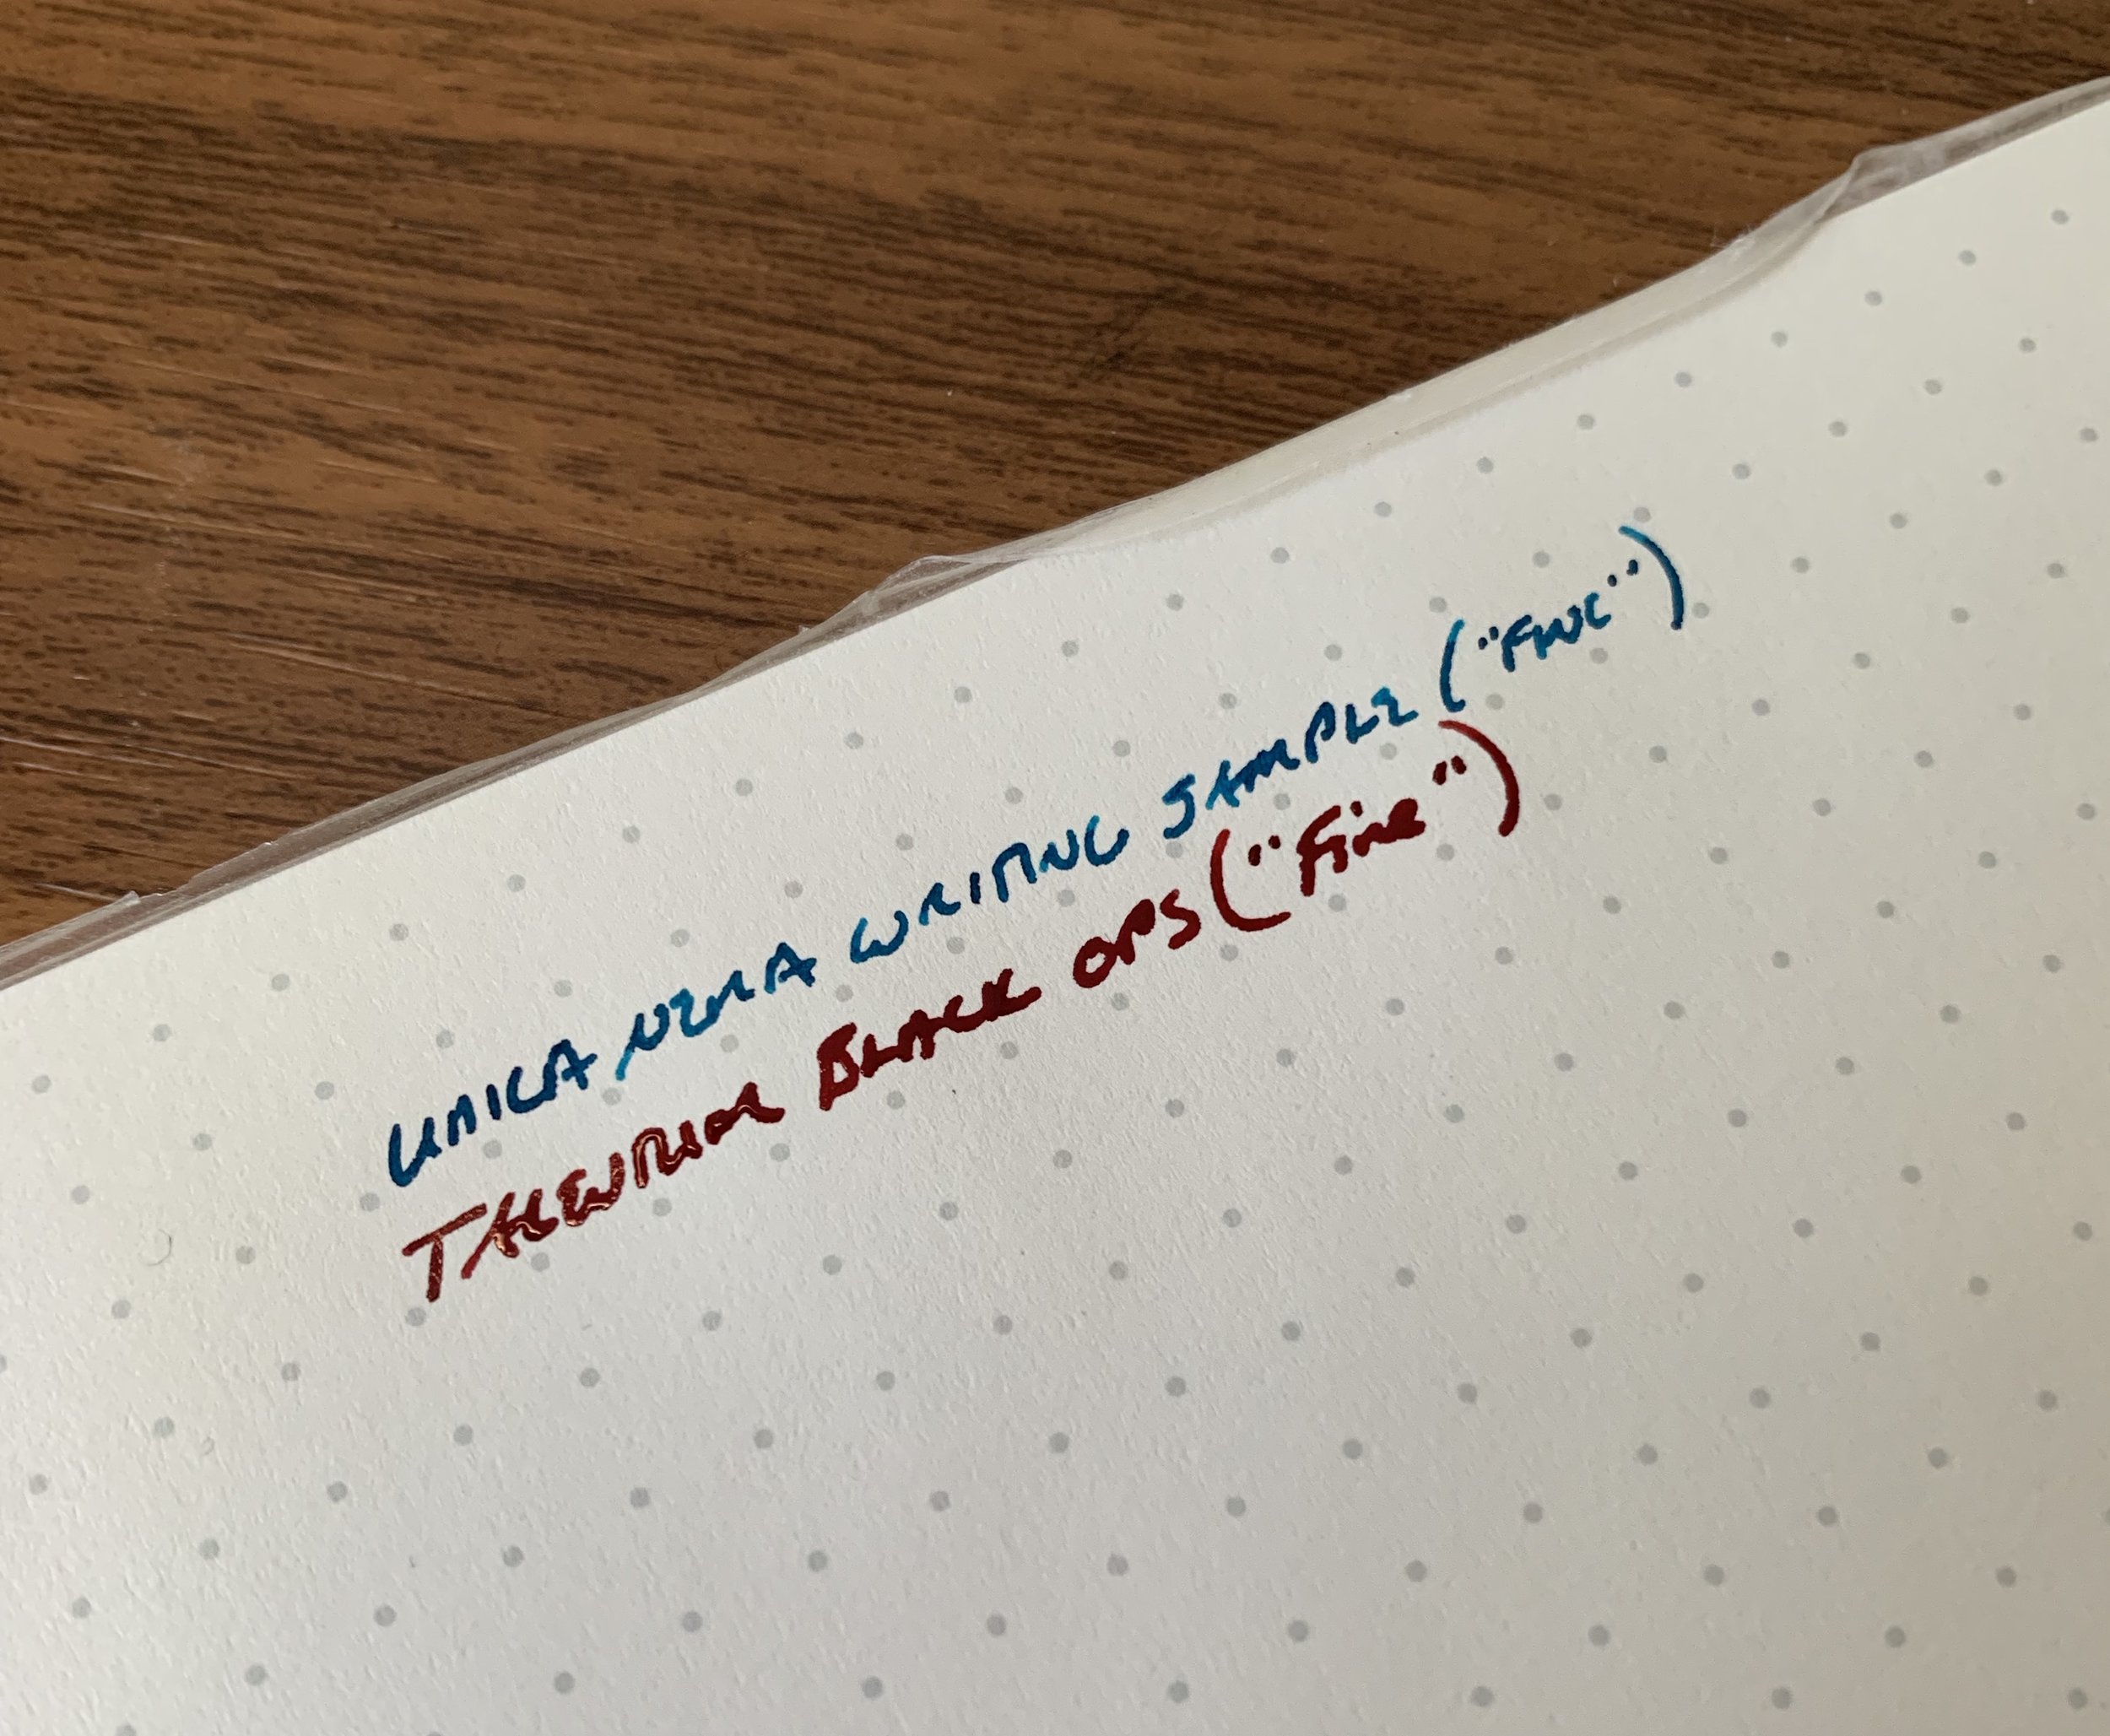 UNICA NERA WRITING SAMPLE ("FINE")
TALENTUM BLACK OPS ("Fine")